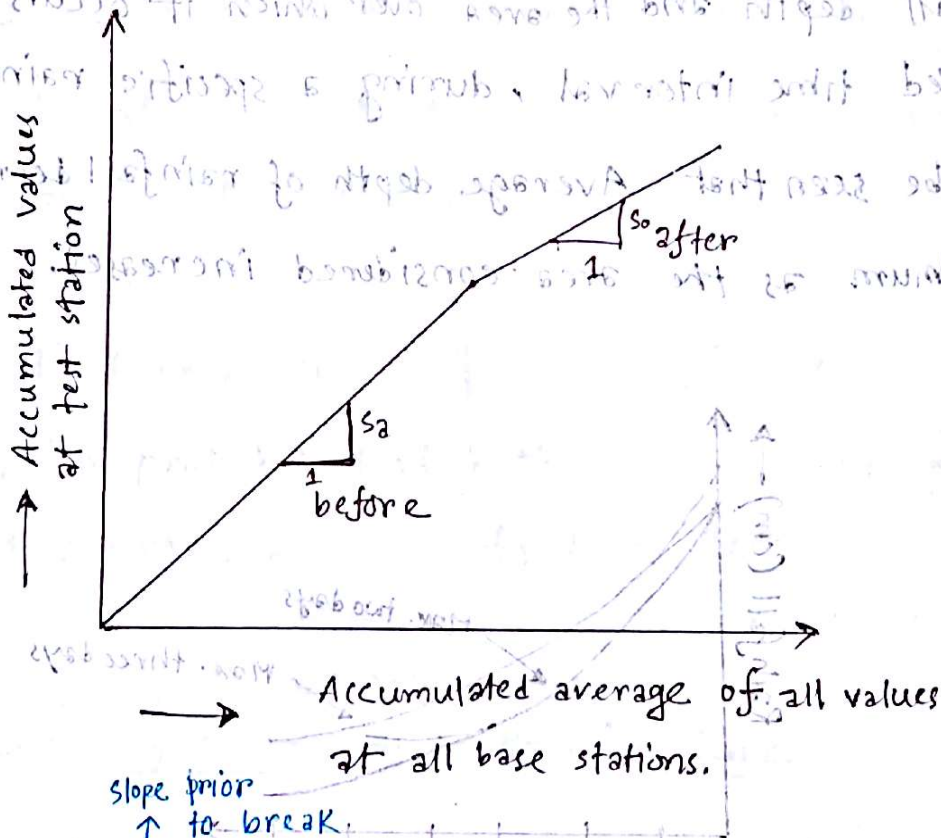 → Accumulated values
at test station
So
after
1
Sa
1
before
→ Accumulated average of all values
at all base stations.
slope prior
↑ to break